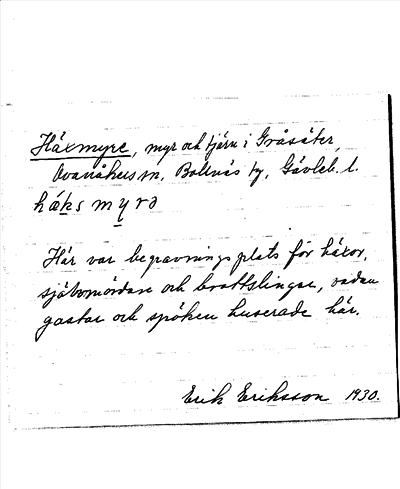 Häxmyre, myr och tjärn i Gråsäter,
Ovanåkers sn, Bollnäs tg, Gävleb. l.
häks myrə
Här var begravningsplats för häxor,
självmördare och brottslingar, sedan
gastar och spöken huserade här.
Erik Eriksson 1930.